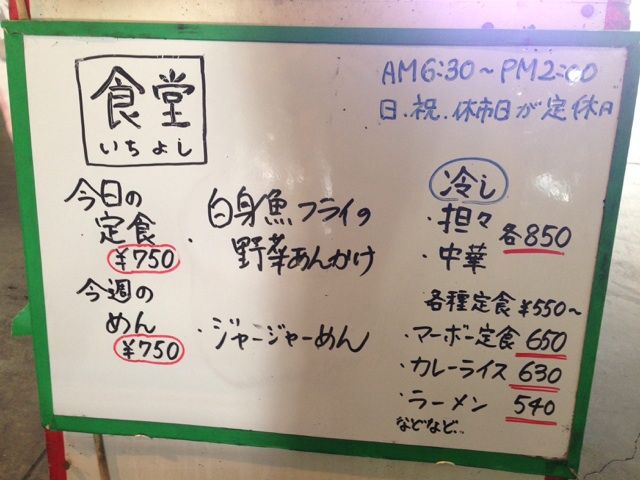 食堂
いちよし
AM6:30〜PM2:00
日.祝.休市日が定休日
今日の
定食
¥750
・白身魚フライの
野菜あんかけ
今週の
めん
¥750
・ジャージャーめん
冷し
・担々
・中華
各850
各種定食¥550〜
・マーボー定食 650
・カレーライス 630
・ラーメン 540
などなど…